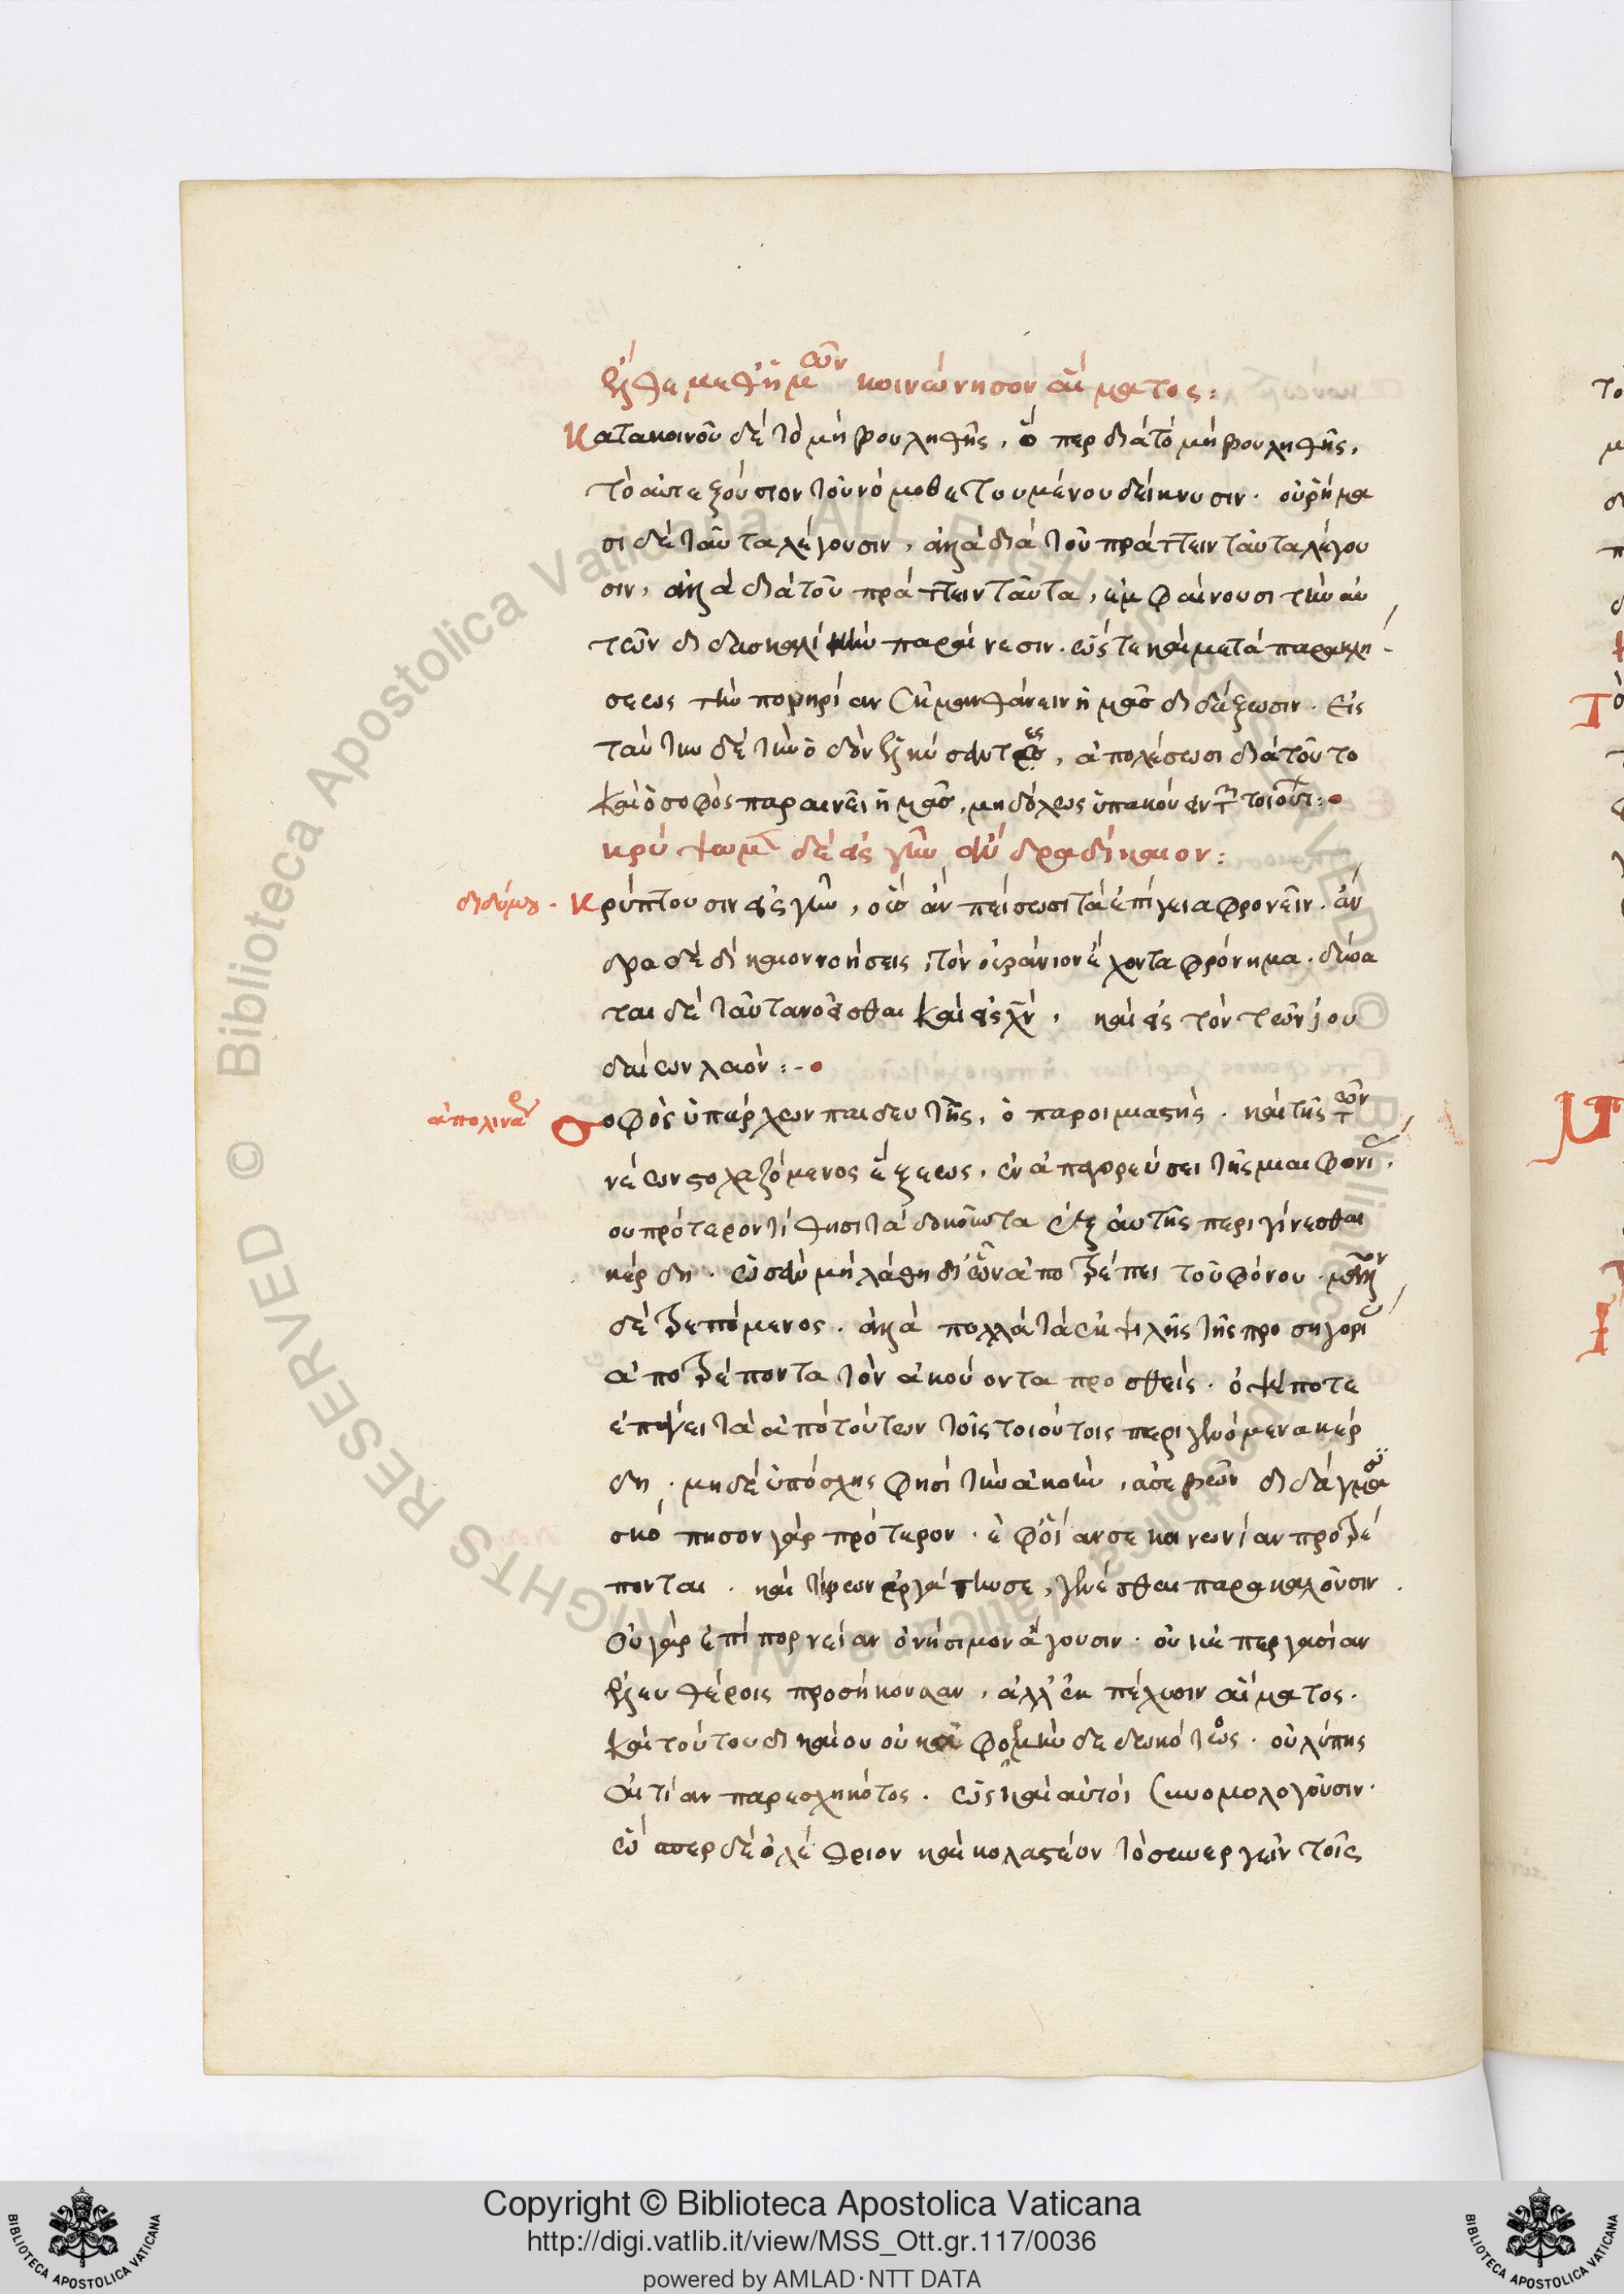 ἐλθὲ μεθ' ἡμῶν κοινώνησον αἵματος:
Κατακοινοῦ δὲ τὸ μὴ βουληθῆς, ὅπερ διὰ τὸ μὴ βουληθῆς,
τὸ αὐτεξούσιον τοῦ νομοθετουμένου δείκνυσιν. οὐ ῥήμα
σι δὲ ταῦτα λέγουσιν, ἀλλὰ διὰ τοῦ πράττειν ταῦτα λέγου
σιν, ἀλλὰ διὰ τοῦ πράττειν ταῦτα, ἐμφαίνουσι τὴν αὐ
τῶν διδασκαλικὴν παραίνεσιν. ὥστε καὶ μετὰ παρακλή
σεως τὴν πονηρίαν ἐκμανθάνειν ἡμᾶς διδάξωσιν. Εἰς
ταύτην δὲ τὴν ὁδὸν ἑλκύσαντες, ἀπολέσωσι διὰ τοῦτο
καὶ ὁ σοφὸς παραινεῖ ἡμᾶς, μηδόλως ὑπακούειν τ τοιούτ:
κρύψωμ δὲ εἰς γῆν ἄνδρα δίκαιον:
διδύμου. Κρύπτουσιν εἰς γῆν, οὓς ἂν πείσωσι τὰ ἐπίγεια φρονεῖν. ἄν
δρα δὲ δίκαιον νοήσεις, τὸν οὐράνιον ἔχοντα φρόνημα. δύνα
ται δὲ ταῦτα νοεῖσθαι καὶ εἰς χν, καὶ εἰς τὸν τῶν ἰου
δαίων λαόν:-
ἀπολιναρ Σοφὸς ὑπάρχων παιδευτὴς, ὁ παροιμιαστής. καὶ τῆς τῶν
νέων στοχαζόμενος ἕξεως, ἐν ἀπαγορεύσει τῆς μιαιφονί,
ου πρότερον τίθησι τὰ δοκοῦντα ἐξ αὐτῆς περιγίνεσθαι
κέρδη. ὡς ἂν μὴ λάθη δι' ὧν ἀποτρέπει τοῦ φόνου. μᾶλλον
δὲ τρεπόμενος. ἀλλὰ πολλὰ τὰ ἐκ ψιλῆς τῆς προσηγορί
ἀποτρέποντα τὸν ἀκούοντα προσθεὶς. ὀψέποτε
ἐπάγει τὰ ἀπὸ τούτων τοῖς τοιούτοις περιγινόμενα κέρ
δη. μηδὲ ὑπόσχης φησὶ τὴν ἀκοὴν, ἀσεβῶν διδάγμα
σκόπησον γὰρ πρότερον. ἐφ' οἵαν σε κοινωνίαν προτρέ
πονται. καὶ τίνων ἐργάτην σε, γενέσθαι παρακαλοῦσιν.
Οὐ γὰρ ἐπὶ πορνείαν ὀνήσιμον ἄγουσιν. οὐκ ἐπ' ἐργασίαν
ἐλευθέροις προσήκουσαν, ἀλλ' ἐπ' ἔκχυσιν αἵματος.
καὶ τούτου δικαίου οὐκ ἀφορμὴν δεδωκότος. οὐ λύπης
αἰτίαν παρεσχηκότος. ὡς καὶ αὐτοὶ συνομολογοῦσιν.
ὥσπερ δὲ ὀλέθριον καὶ κολαστέον τὸ συνεργεῖν τοῖς
Copyright © Biblioteca Apostolica Vaticana
http://digi.vatlib.it/view/MSS_Ott.gr.117/0036
powered by AMLAD·NTT DATA